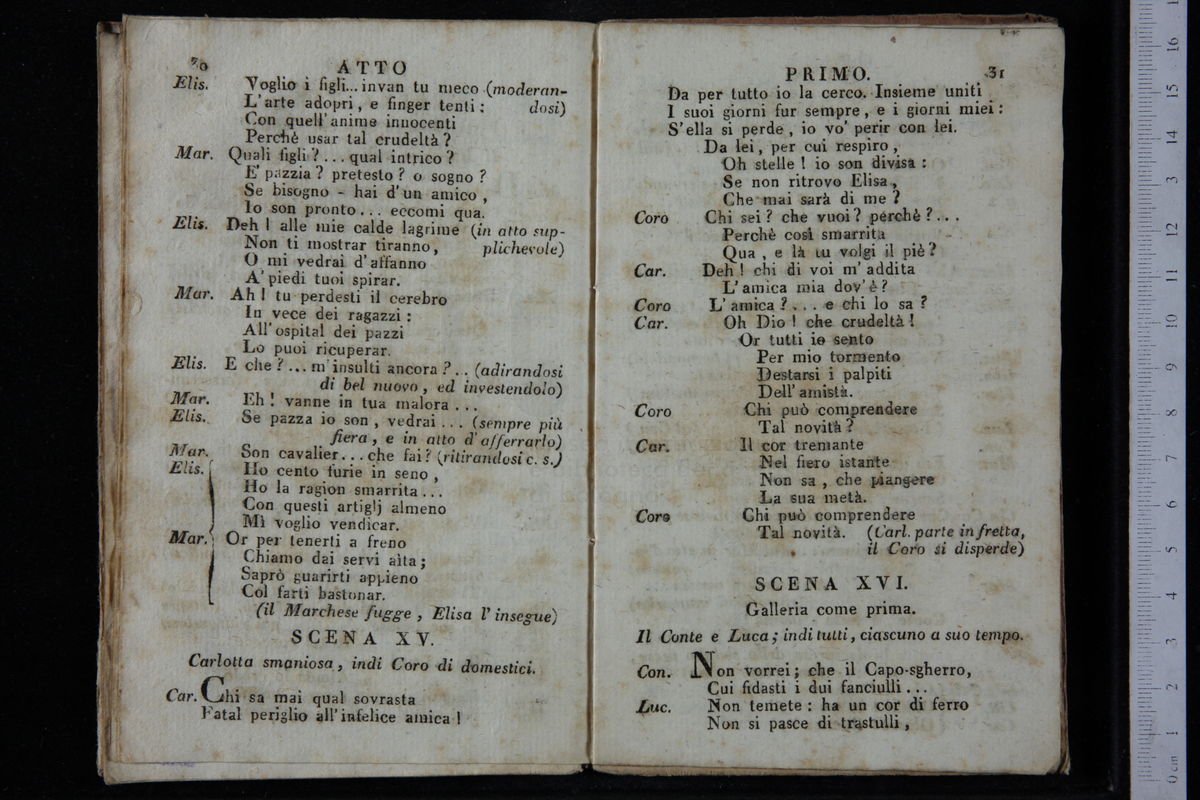 30 ATTO
Elis. Voglio i figli... invan tu meco (moderan-
L'arte adopri, e finger tenti: dosi)
Con quell'anime innocenti
Perchè usar tal crudeltà?
Mar. Quali figli?... qual intrico?
E' pazzia? pretesto? o sogno?
Se bisogno - hai d'un amico,
Io son pronto... eccomi qua.
Elis. Deh! alle mie calde lagrime (in atto sup-
Non ti mostrar tiranno, plichevole)
O mi vedrai d'affanno
A' piedi tuoi spirar.
Mar. Ah! tu perdesti il cerebro
In vece dei ragazzi:
All'ospital dei pazzi
Lo puoi ricuperar.
Elis. E che?... m'insulti ancora?.. (adirandosi
di bel nuovo, ed investendolo)
Mar. Eh! vanne in tua malora...
Elis. Se pazza io son, vedrai... (sempre più
fiera, e in atto d'afferrarlo)
Mar. Son cavalier... che fai? (ritirandosi c. s.)
Elis. Ho cento furie in seno,
Ho la ragion smarrita...
Con questi artiglj almeno
Mi voglio vendicar.
Mar. Or per tenerti a freno
Chiamo dai servi aita;
Saprò guarirti appieno
Col farti bastonar.
(il Marchese fugge, Elisa l'insegue)
SCENA XV.
Carlotta smaniosa, indi Coro di domestici.
Car. Chi sa mai qual sovrasta
Fatal periglio all'infelice amica!
PRIMO. 31
Da per tutto io la cerco. Insieme uniti
I suoi giorni fur sempre, e i giorni miei:
S'ella si perde, io vo' perir con lei.
Da lei, per cui respiro,
Oh stelle! io son divisa:
Se non ritrovo Elisa,
Che mai sarà di me?
Coro Chi sei? che vuoi? perchè?...
Perchè così smarrita
Qua, e là tu volgi il piè?
Car. Deh! chi di voi m'addita
L'amica mia dov'è?
Coro L'amica?... e chi lo sa?
Car. Oh Dio! che crudeltà!
Or tutti io sento
Per mio tormento
Destarsi i palpiti
Dell'amistà.
Coro Chi può comprendere
Tal novità?
Car. Il cor tremante
Nel fiero istante
Non sa, che piangere
La sua metà.
Coro Chi può comprendere
Tal novità. (Carl. parte in fretta,
il Coro si disperde)
SCENA XVI.
Galleria come prima.
Il Conte e Luca; indi tutti, ciascuno a suo tempo.
Con. Non vorrei; che il Capo-sgherro,
Cui fidasti i dui fanciulli...
Luc. Non temete: ha un cor di ferro
Non si pasce di trastulli,
0 cm 1 2 3 4 5 6 7 8 9 10 11 12 13 14 15 16